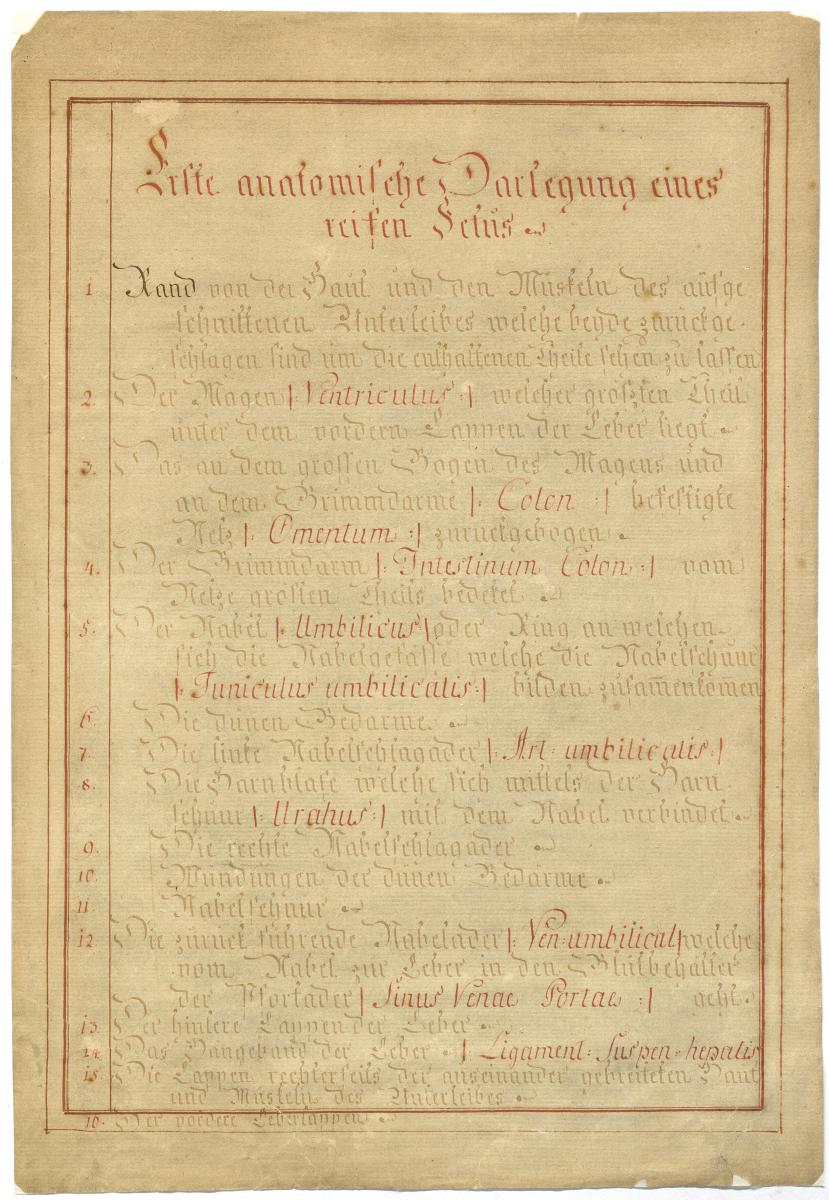 Erste anatomische Darlegung eines
reifen Fetus
1 Rand von der Haut und den Muskeln des aufge
schnittenen Unterleibes welche beyde zurückge-
schlagen sind um die enthaltenen Theile sehen zu lassen
2. Der Magen |: Ventriculus :| welcher grösten Theil
unter dem vordern Lappen der Leber liegt
3. Das an dem grossen Bogen des Magens und
an dem Grimmdarme |: Colon :| befestigte
Netz |: Omentum :| zurückgebogen
4. Der Grimmdarm |: Intestinum Colon :| vom
Netze grösten Theils bedeket
5. Der Nabel |: Umbilicus :| oder Ring an welchen
sich die Nabelgefässe welche die Nabelschnur
|: Funiculus umbilicalis :| bilden zusam̄enkom̄en
6. Die dünen Gedärme.
7. Die linke Nabelschlagader |: Art: umbilicalis :|
8. Die Harnblase welche sich mittels der Harn
schnur |: Urahus :| mit dem Nabel verbindet
9. Die rechte Nabelschlagader
10. Windungen der dünen Gedärme
11. Nabelschnur
12. Die zurück führende Nabelader |: Ven: umbilical :| welche
vom Nabel zur Leber in den Blutbehälter
der Pfortader |: Sinus Venae Portae :| geht.
13. Der hintere Lappen der Leber
14. Das Hangeband der Leber |: Ligament: Suspen: hepatis
15. Die Lappen rechterseits der auseinander gebreiteten Haut
und Muskeln des Unterleibes
16. Der vordere Leberlappen